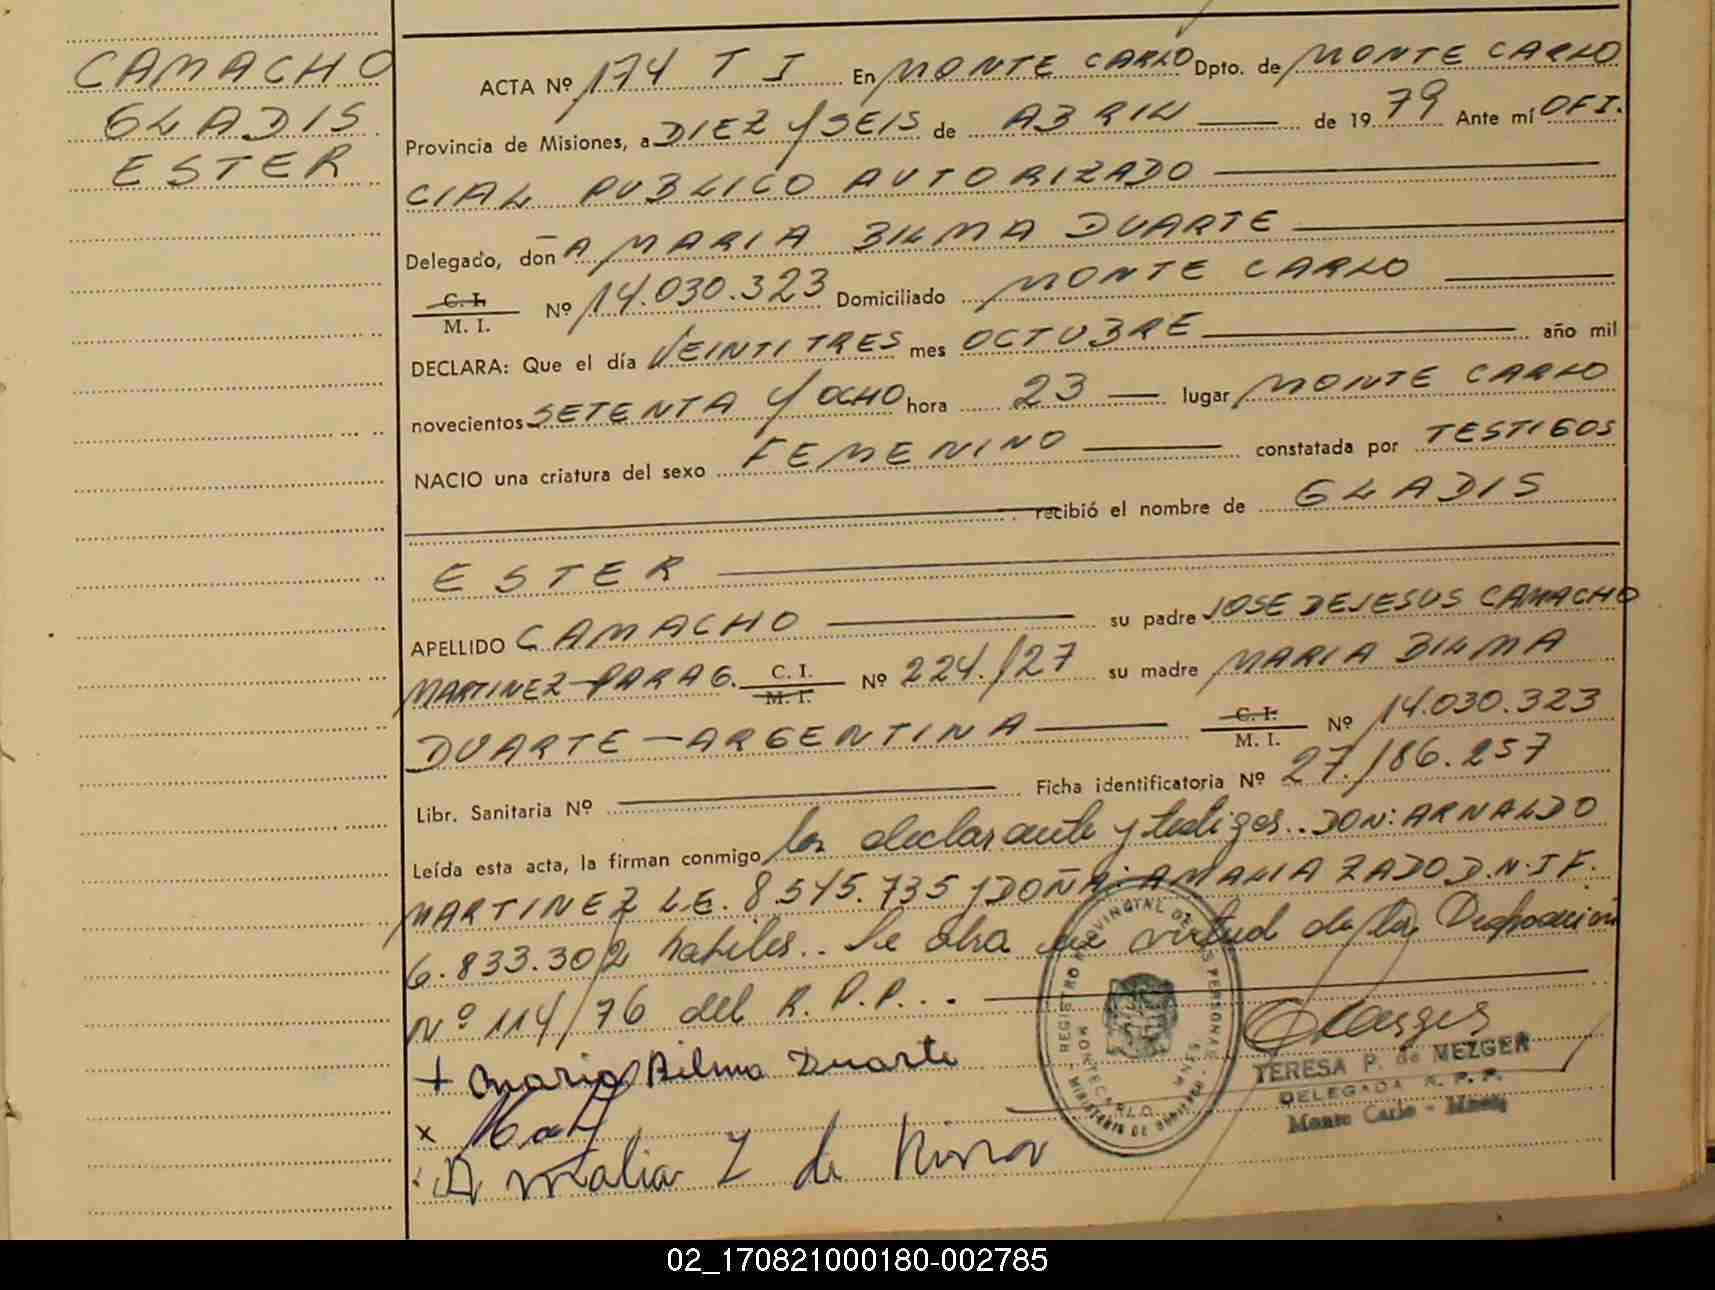 CAMACHO
GLADIS
ESTER
ACTA Nº 174 T I En MONTE CARLO Dpto. de MONTE CARLO
Provincia de Misiones, a DIEZ Y SEIS de ABRIL de 1979 Ante mí OFI.
CIAL PUBLICO AUTORIZADO
Delegado, doña MARIA BILMA DUARTE
C. I.
M. I. Nº 14.030.323 Domiciliado MONTE CARLO
DECLARA: Que el día VEINTITRES mes OCTUBRE año mil
novecientos SETENTA Y OCHO hora 23 lugar MONTE CARLO
NACIO una criatura del sexo FEMENINO constatada por TESTIGOS
recibió el nombre de GLADIS
ESTER
APELLIDO CAMACHO su padre JOSE DEJESUS CAMACHO
MARTINEZ-PARAG. C. I. M. I. Nº 224./27 su madre MARIA BILMA
DUARTE-ARGENTINA C. I. M. I. Nº 14.030.323
Libr. Sanitaria Nº Ficha identificatoria Nº 27./86.257
Leída esta acta, la firman conmigo la declarante y testigos.. DON: ARNALDO
MARTINEZ L.E. 8.515.735 y DOÑA: AMALIA ZADO D.N.I F.
6.833.302 habiles.. Se obra en virtud de la Disposicion
Nº 114/76 del R.P.P...
+ Maria Bilma Duarte
x
Amalia Z de
REGISTRO PROVINCIAL DE LAS PERSONAS
MONTECARLO MNES
MINISTERIO DE GOBIERNO
TERESA P. de MEZGER
DELEGADA R. P. P.
Monte Carlo - Mnes
02_170821000180-002785